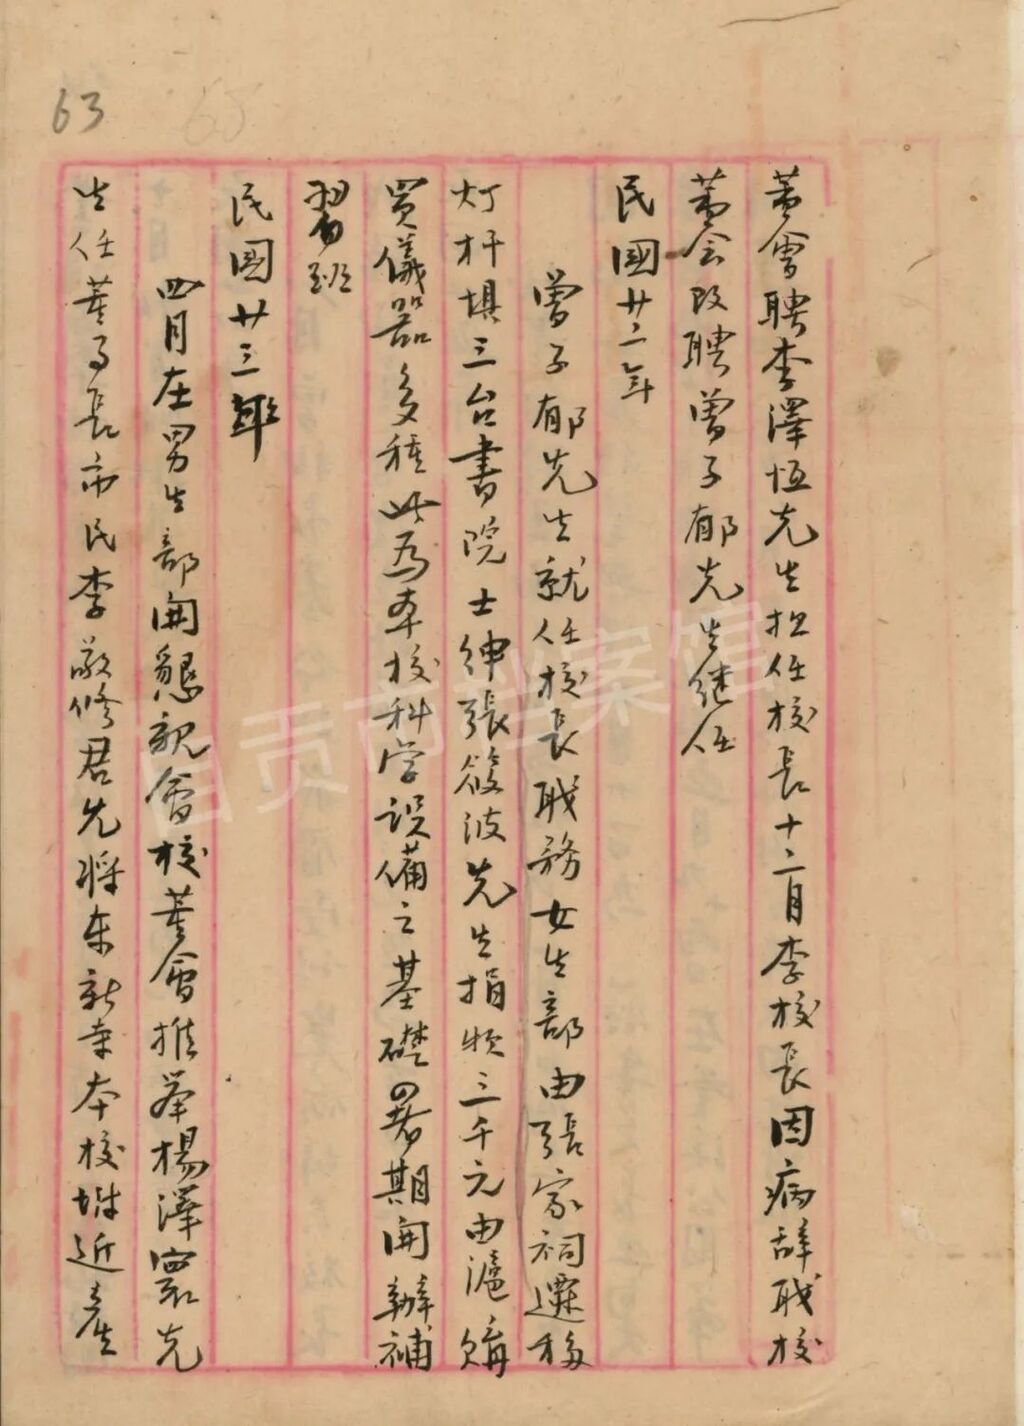 63
董會聘李澤恒先生担任校長十二月李校長因病辞职校
董会改聘曾子郁先生继任
民國廿二年
曾子郁先生就任校長职務女生部由張家祠遷移
灯杆壩三台書院士绅張筱波先生捐欵三千元由滬購
買儀器多種此為本校科学設備之基礎暑期開辦補
習班
民國廿三年
四月在男生部開懇親會校董會推举楊澤寰先
生任董事長市民李敬修君先将东新寺本校坿近產
自贡市档案馆